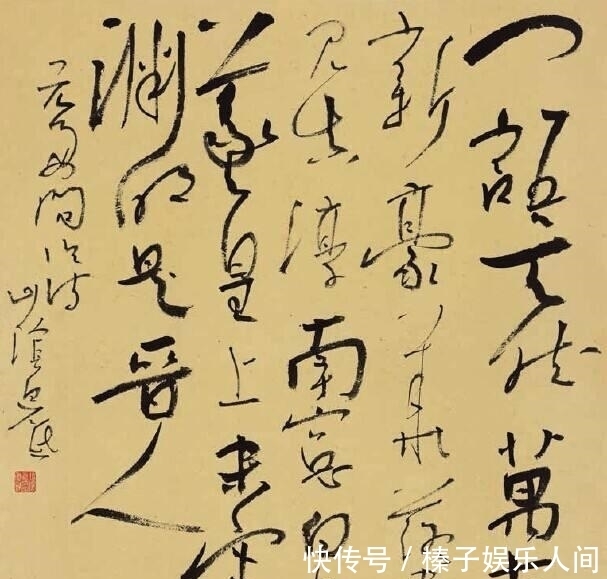 一語天然萬
新豪華落
見真淳南窗白
羲皇上未害
淵明是晉人
元好問論詩
山陰
快传号 / 榛子娱乐人间